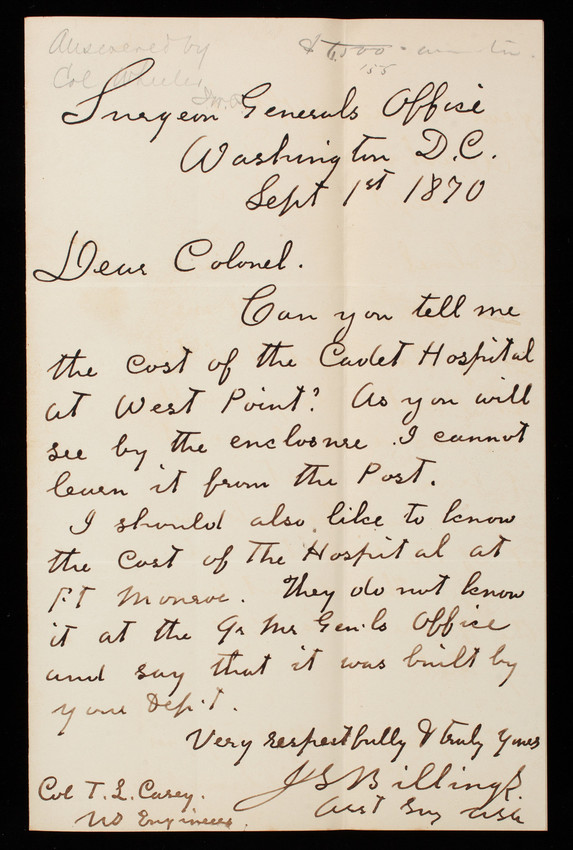 Answered by
Col Wheeler
$ 6,500
155
Surgeon Generals Office
Washington D.C.
Sept 1st 1870
Dear Colonel.
Can you tell me
the cost of the Cadet Hospital
at West Point? As you will
see by the enclosure I cannot
learn it from the Post.
I should also like to know
the cost of the Hospital at
Ft Monroe. They do not know
it at the Qr Mr Genls Office
and say that it was built by
your Dept.
Very respectfully & truly yours
J S Billings
Asst Surg USA
Col T. L. Casey.
US Engineers.